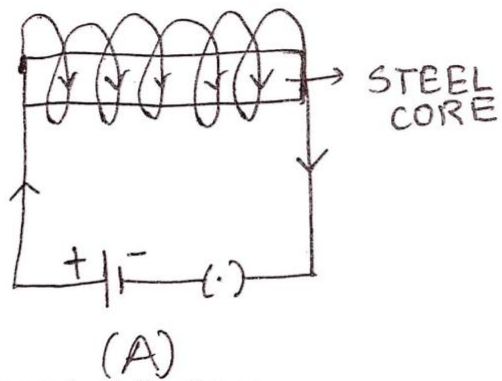 STEEL
CORE
+ -
(·)
(A)